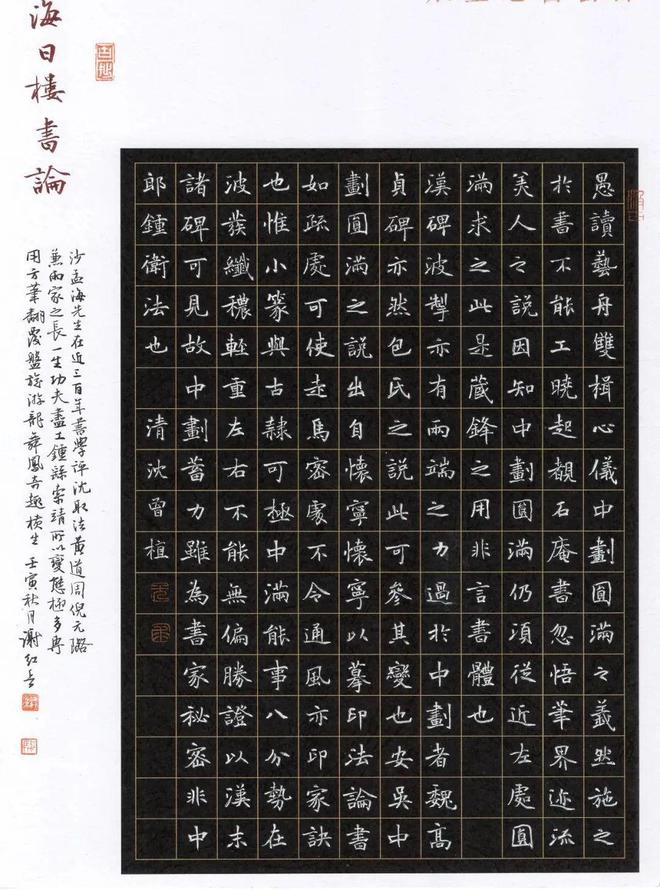 海日樓書論
愚讀藝舟雙楫心儀中劃圓滿之義然施之
於書不能工曉起覩石庵書忽悟筆界迹流
美人之說因知中劃圓滿仍須從近左處圓
滿求之此是藏鋒之用非言書體也
漢碑波掣亦有兩端之力過於中劃者魏高
貞碑亦然包氏之說此可參其變也安吳中
劃圓滿之說出自懷寧懷寧以摹印法論書
如疏處可使走馬密處不令通風亦印家訣
也惟小篆與古隸可極中滿能事八分勢在
波發纖穠輕重左右不能無偏勝證以漢末
諸碑可見故中劃蓄力雖為書家秘密非中
郎鍾衛法也 清沈曾植
沙孟海先生在近三百年書學評沈取法黃道周倪元璐
兼兩家之長一生功夫盡工鍾繇索靖所以變態極多
用方筆翻覆盤旋游龍舞鳳奇趣橫生 壬寅秋月謝紅